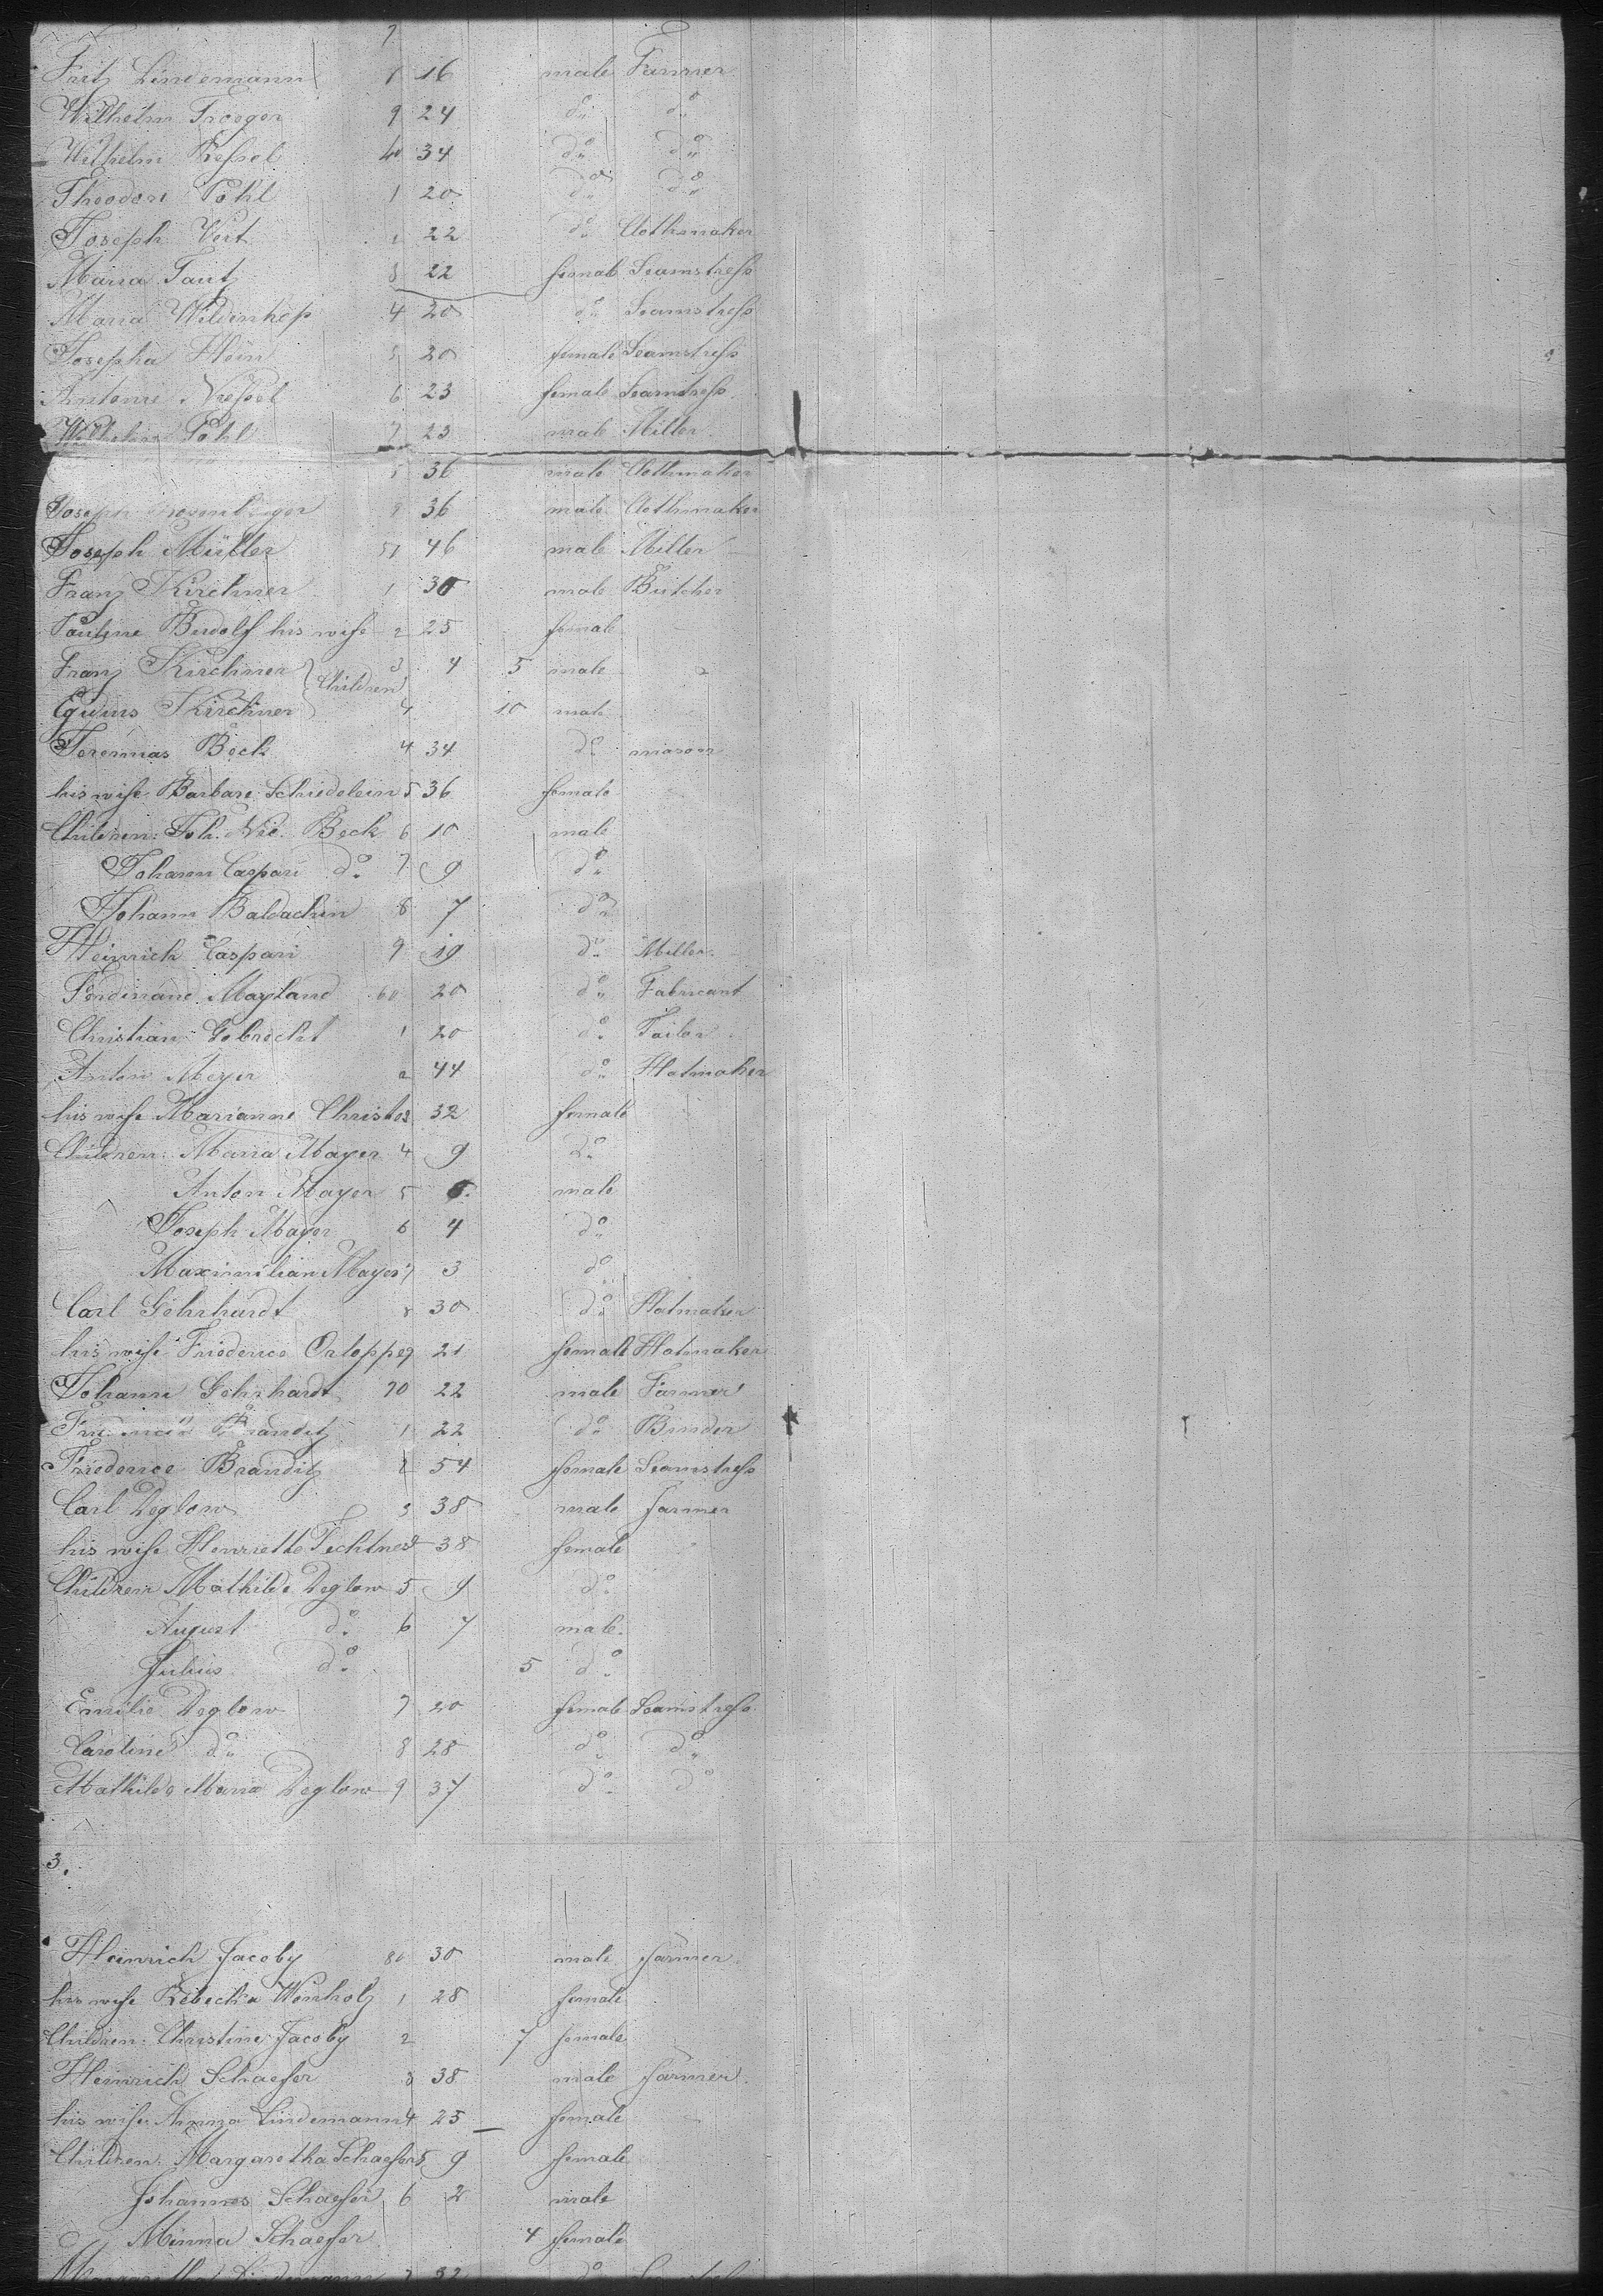 7
Fritz Lindemann 8 16 male Farmer
Wilhelm Troeger 9 24 do do
Wilhelm Ressel 40 34 do do
Theodor Pohl 1 20 do do
Joseph Veit 2 22 do Clothmaker
Maria Tautz 3 22 female Seamstress
Maria Wildenhof 4 20 do Seamstress
Josepha Hein 5 20 female Seamstress
Antonie Nressel 6 23 female Seamstress
Wilhelm Pohl 7 23 male Miller
36 male Clothmaker
Joseph 36 male Clothmaker
Joseph Müller 51 46 male Miller
Franz Kirchner 1 30 male Butcher
Pauline Budolf his wife 2 25 female
Franz Kirchner 3 4 5 male
Children
Kirchner 4 10 male
Jeremias Beck 4 34 do mason
his wife Barbara Schiedelein 5 36 female
Children: Joh. Nic. Beck 6 10 male
Johann Caspari do 7 9 do
Johann Baldachin 8 7 do
Heinrich Caspari 9 19 do Miller
Ferdinand Mayland 60 20 do Fabricant
Christian Gobrecht 1 20 do Tailor
Anton Meyer 2 44 do Hatmaker
his wife Marianne Christ 32 female
Children: Maria Mayer 4 9 do
Anton Mayer 5 6 male
Joseph Mayer 6 4 do
Maximilian Mayer 7 3 do
Carl Gehrhardt 8 30 do Hatmaker
his wife Friederice Ortepp 9 21 female Hatmaker
Johann Gehrhardt 70 22 male Farmer
Branditz 1 22 do Binder
Friederice Branditz 2 54 female Seamstress
Carl Deglow 3 38 male farmer
his wife Henriette Techtner 38 female
Children Mathilde Deglow 5 9 do
August do 6 7 male
Julius do 5 do
Emilie Deglow 7 20 female Seamstress
Caroline do 8 28 do do
Mathilde Maria Deglow 9 37 do do
3.
Heinrich Jacoby 80 30 male farmer
his wife Rebecka Wonholz 1 28 female
Children: Christine Jacoby 2 7 female
Heinrich Schaefer 3 38 male farmer
his wife Anna Lindemann 4 25 female
Children: Margaretha Schaefer 5 9 female
Johannes Schaefer 6 2 male
Minna Schaefer 4 female
Margaretha Lindemann 7 32 do